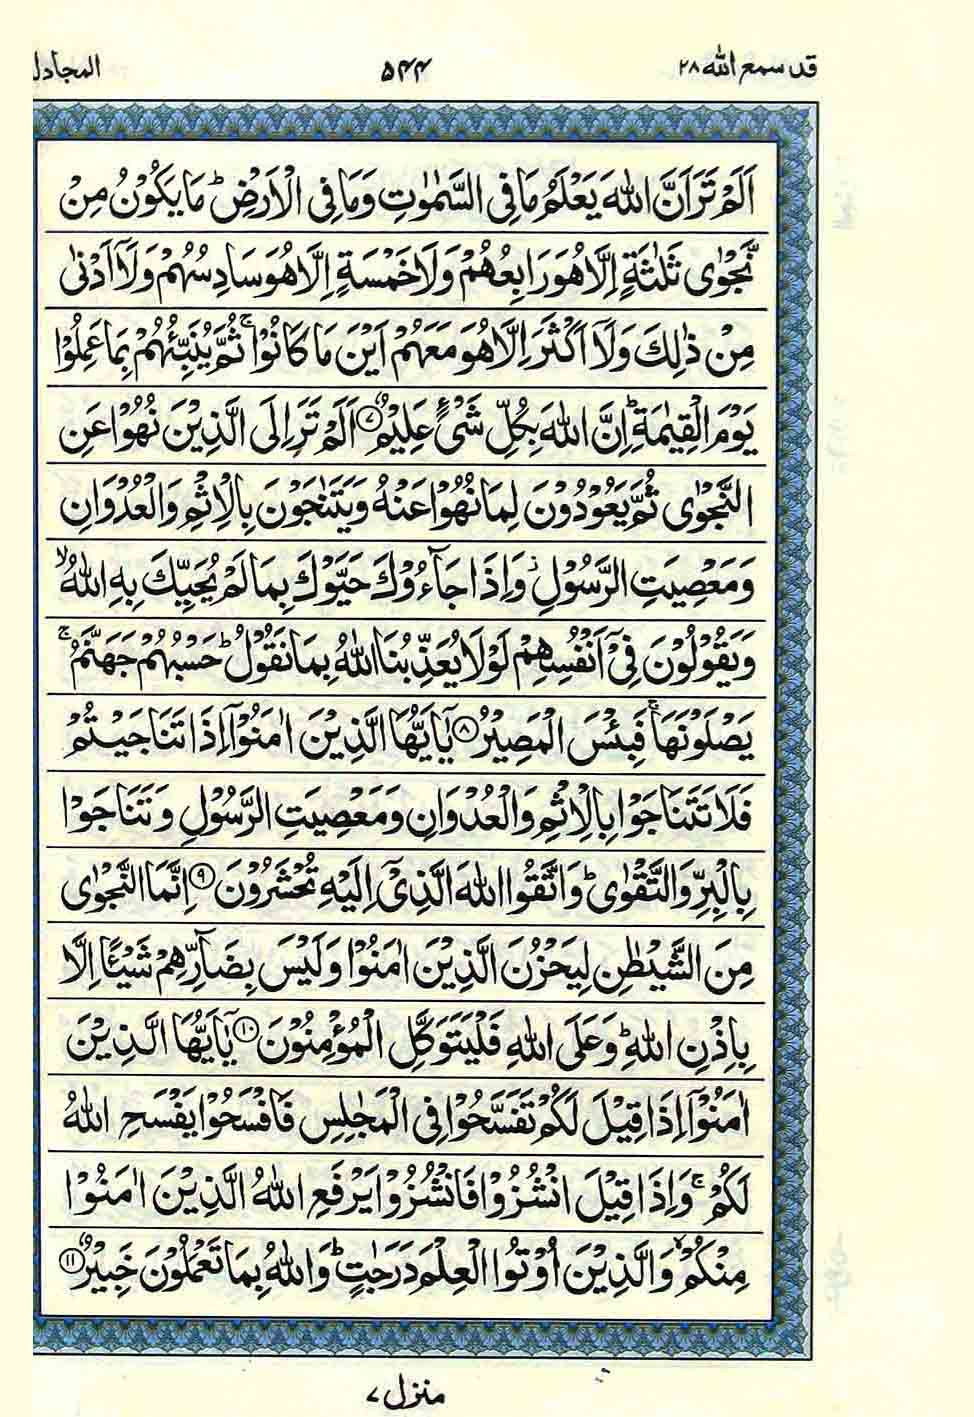 قد سمع الله ۲۸
۵۴۴
المجادل
اَلَمْ تَرَ اَنَّ اللّٰهَ يَعْلَمُ مَا فِى السَّمٰوٰتِ وَمَا فِى الْاَرْضِ ؕ مَا يَكُوْنُ مِنْ
نَّجْوٰى ثَلٰثَةٍ اِلَّا هُوَ رَابِعُهُمْ وَلَا خَمْسَةٍ اِلَّا هُوَ سَادِسُهُمْ وَلَاۤ اَدْنٰى
مِنْ ذٰلِكَ وَلَاۤ اَكْثَرَ اِلَّا هُوَ مَعَهُمْ اَيْنَ مَا كَانُوْا ۚ ثُمَّ يُنَبِّئُهُمْ بِمَا عَمِلُوْا
يَوْمَ الْقِيٰمَةِ ؕ اِنَّ اللّٰهَ بِكُلِّ شَىْءٍ عَلِيْمٌ ۷ اَلَمْ تَرَ اِلَى الَّذِيْنَ نُهُوْا عَنِ
النَّجْوٰى ثُمَّ يَعُوْدُوْنَ لِمَا نُهُوْا عَنْهُ وَيَتَنٰجَوْنَ بِالْاِثْمِ وَالْعُدْوَانِ
وَمَعْصِيَتِ الرَّسُوْلِ ۫ وَاِذَا جَآءُوْكَ حَيَّوْكَ بِمَا لَمْ يُحَيِّكَ بِهِ اللّٰهُ ۙ
وَيَقُوْلُوْنَ فِىْۤ اَنْفُسِهِمْ لَوْلَا يُعَذِّبُنَا اللّٰهُ بِمَا نَقُوْلُ ؕ حَسْبُهُمْ جَهَنَّمُ ۚ
يَصْلَوْنَهَا ۚ فَبِئْسَ الْمَصِيْرُ ۸ يٰۤاَيُّهَا الَّذِيْنَ اٰمَنُوْۤا اِذَا تَنَاجَيْتُمْ
فَلَا تَتَنَاجَوْا بِالْاِثْمِ وَالْعُدْوَانِ وَمَعْصِيَتِ الرَّسُوْلِ وَتَنَاجَوْا
بِالْبِرِّ وَالتَّقْوٰى ؕ وَاتَّقُوا اللّٰهَ الَّذِىْۤ اِلَيْهِ تُحْشَرُوْنَ ۹ اِنَّمَا النَّجْوٰى
مِنَ الشَّيْطٰنِ لِيَحْزُنَ الَّذِيْنَ اٰمَنُوْا وَلَيْسَ بِضَآرِّهِمْ شَيْـًٔا اِلَّا
بِاِذْنِ اللّٰهِ ؕ وَعَلَى اللّٰهِ فَلْيَتَوَكَّلِ الْمُؤْمِنُوْنَ ۱۰ يٰۤاَيُّهَا الَّذِيْنَ
اٰمَنُوْۤا اِذَا قِيْلَ لَكُمْ تَفَسَّحُوْا فِى الْمَجٰلِسِ فَافْسَحُوْا يَفْسَحِ اللّٰهُ
لَكُمْ ۚ وَاِذَا قِيْلَ انْشُزُوْا فَانْشُزُوْا يَرْفَعِ اللّٰهُ الَّذِيْنَ اٰمَنُوْا
مِنْكُمْ ۙ وَالَّذِيْنَ اُوْتُوا الْعِلْمَ دَرَجٰتٍ ؕ وَاللّٰهُ بِمَا تَعْمَلُوْنَ خَبِيْرٌ ۱۱
منزل ۷